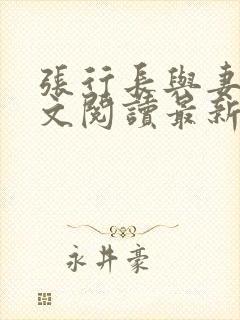 張行長與妻
文閱讀最新
永井豪